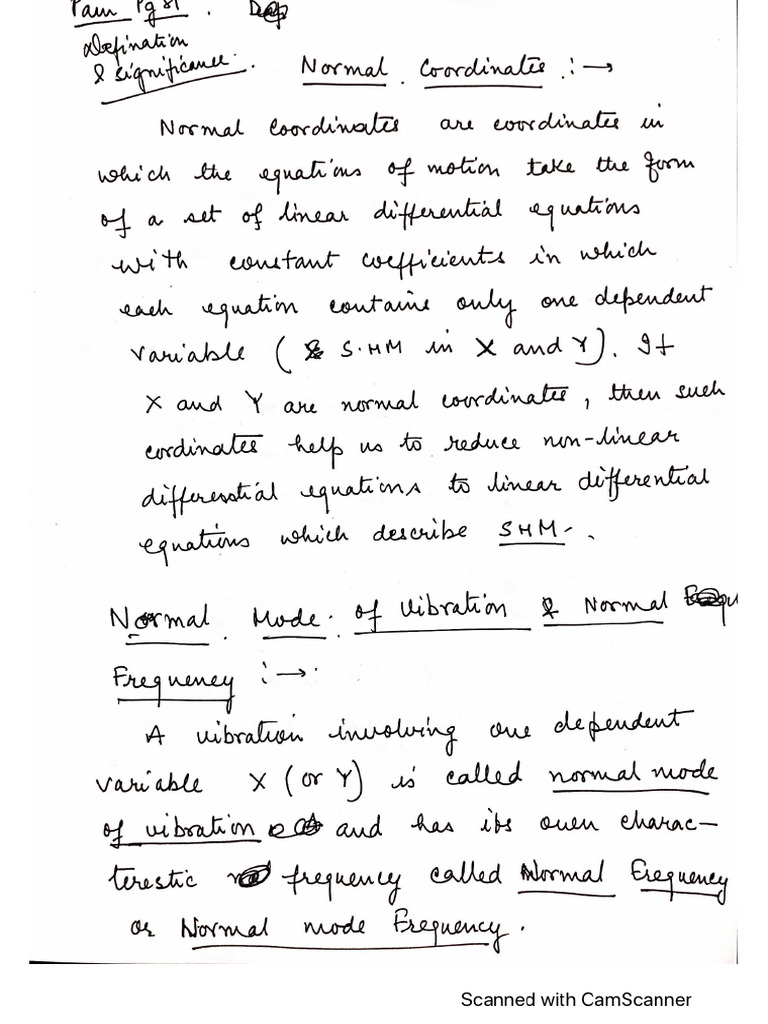 Pain Pg 81 .
Defination
& significance .
Normal Coordinates :→
Normal Coordinates are coordinates in
which the equations of motion take the form
of a set of linear differential equations
with constant coefficients in which
each equation contains only one dependent
variable ( S.HM in X and Y). If
X and Y are normal coordinates, then such
cordinates help us to reduce non-linear
differential equations to linear differential
equations which describe SHM.
Normal Mode of Vibration & Normal
Frequency :→
A vibration involving one dependent
variable X (or Y) is called normal mode
of vibration and has its own charac-
terestic frequency called Normal Frequency
or Normal mode Frequency.
Scanned with CamScanner